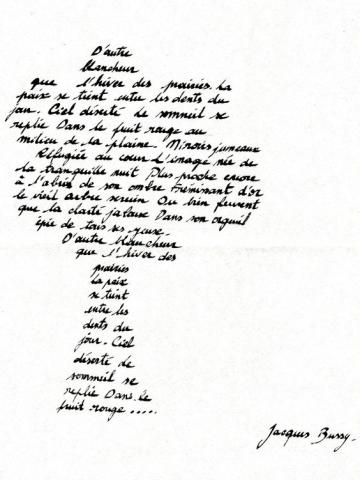 D'autre
blancheur
que l'hiver des prairies. La
paix se tient entre les dents du
jour. Ciel déserté le sommeil se
replie Dans le fruit rouge au
milieu de la plaine. Miroirs jumeaux
Réfugiée au cœur L'image née de
la tranquille nuit Plus proche encore
à l'abri de son ombre frémissant d'or
le vieil arbre serein Ou bien fervent
que la clarté jalouse Dans son orgueil
épie de tous ses yeux.
D'autre blancheur
que l'hiver des
prairies
la paix
se tient
entre les
dents du
jour. Ciel
déserté de
sommeil se
replie Dans le
fruit rouge .....
Jacques Bussy.